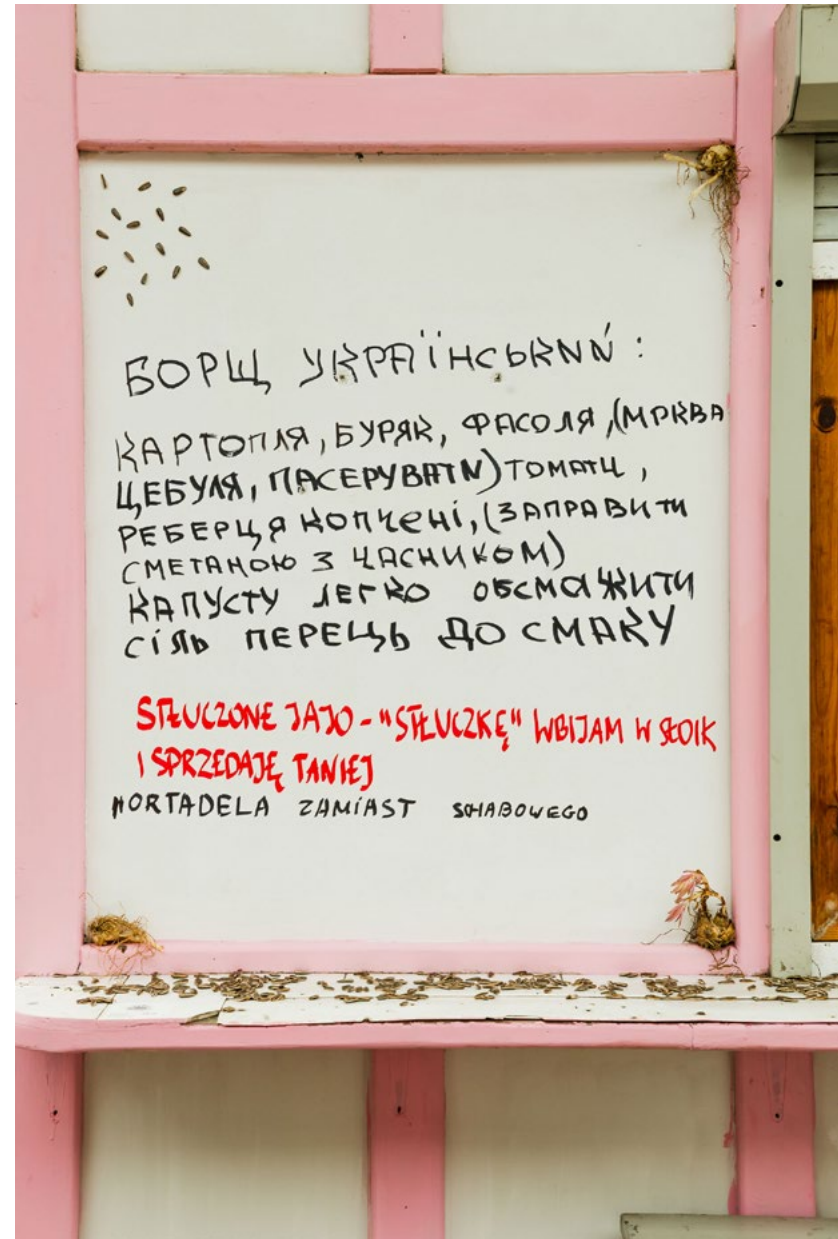 БОРЩ УКРАЇНСЬКИЙ :
КАРТОПЛЯ, БУРЯК, ФАСОЛЯ, (МРКВА
ЦЕБУЛЯ, ПАСЕРУВАТИ) ТОМАТИ,
РЕБЕРЦЯ КОПЧЕНІ, (ЗАПРАВИТИ
СМЕТАНОЮ З ЧАСНИКОМ)
КАПУСТУ ЛЕГКО ОБСМАЖИТИ
СІЛЬ ПЕРЕЦЬ ДО СМАКУ
STŁUCZONE JAJO - "STŁUCZKĘ" WBIJAM W SŁOIK
I SPRZEDAJĘ TANIEJ
MORTADELA ZAMIAST SCHABOWEGO